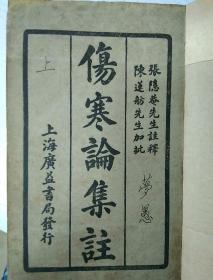 張隱菴先生註釋
陳蓮舫先生加批
傷寒論集註
上海廣益書局發行
上
夢愚